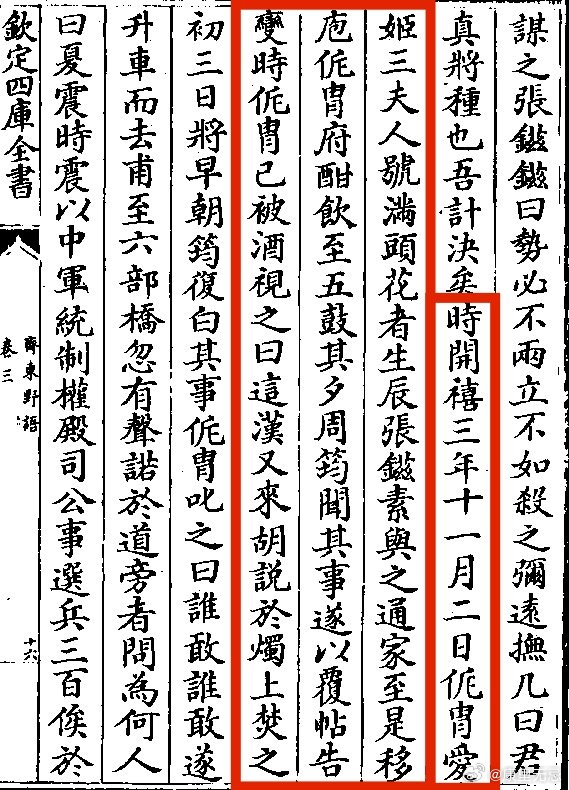 謀之張鎡鎡曰勢必不兩立不如殺之彌逺撫几曰君
真將種也吾計決矣時開禧三年十一月二日侂胄愛
姬三夫人號滿頭花者生辰張鎡素與之通家至是移
庖侂胄府酣飲至五鼓其夕周筠聞其事遂以覆帖告
變時侂胄已被酒視之曰這漢又來胡説於燭上焚之
初三日將早朝筠復白其事侂胄叱之曰誰敢誰敢遂
升車而去甫至六部橋忽有聲諾於道旁者問為何人
曰夏震時震以中軍統制權殿司公事選兵三百俟於
欽定四庫全書
齊東野語
卷三
十六